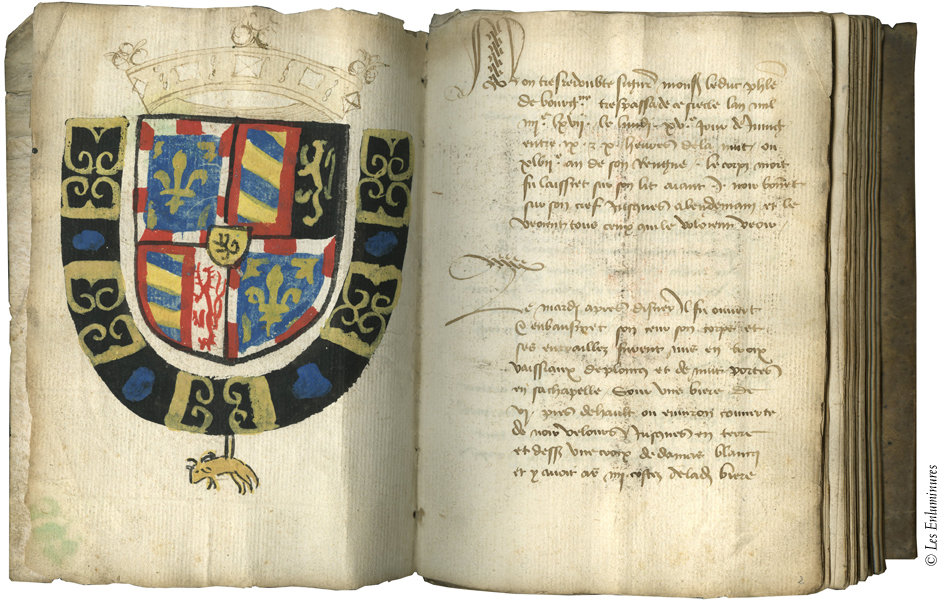 Mon tresredoubte signeur monss le duc phle
de bourgne trespassa de ce siecle lan mil
iiiic lxvii le lundi xve jour de juing
entre ix et x heures de la nuit ou
xlviie an de son Rengne le corps mort
fu laissiet sur son lit aiant j noir bonnet
sur son cief jusques a lendemain et le
veoient tous ceux qui le voloient veoir
Le mardi apres disner Il fu ouvert
et enbausmet son ceur son corps et
ses entrailles furent mis en trois
vaissiaux de plomcq et de nuit portes
en sa chapelle Sour une biere de
vi pies de hault ou environ couverte
de noir velours jusques en terre
et dessus une croix de damas blancq
et y avoit as iiii costez de lad biere
2
© Les Enluminures